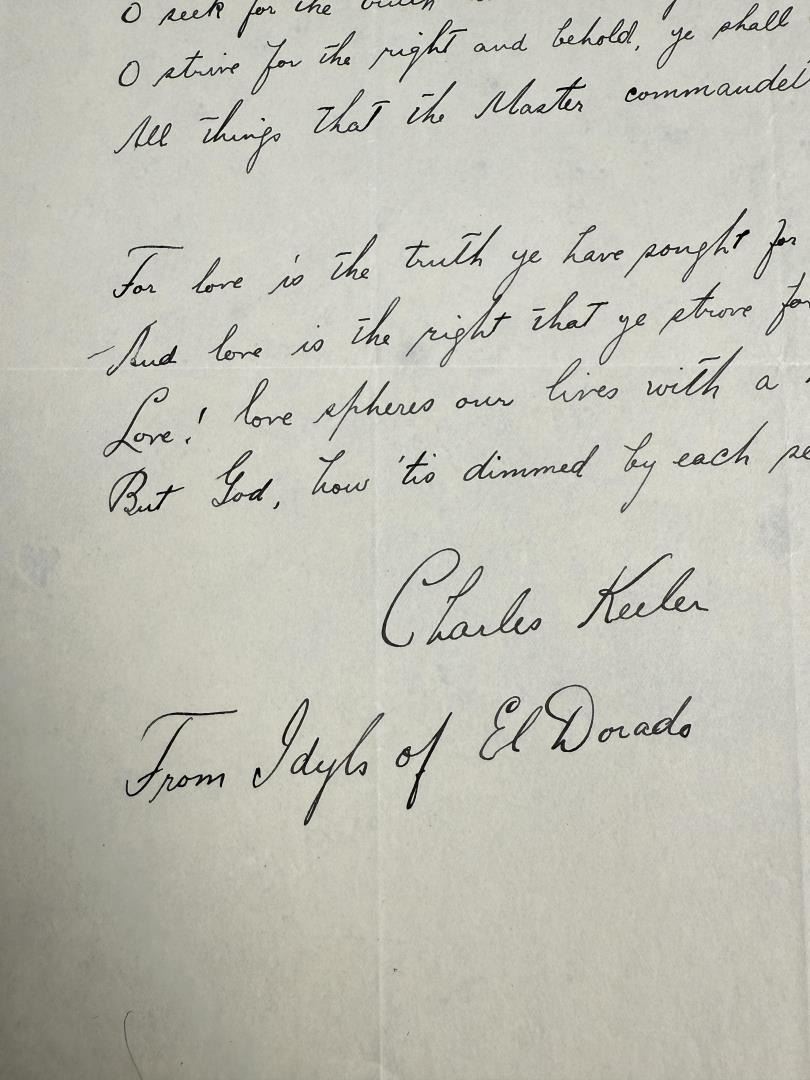 O seek for the truth
O strive for the right and behold, ye shall
All things that the Master commandet
For love is the truth ye have sought for
And love is the right that ye strove for
Love! love spheres our lives with a
But God, how 'tis dimmed by each se
Charles Keeler
From Idyls of El Dorado